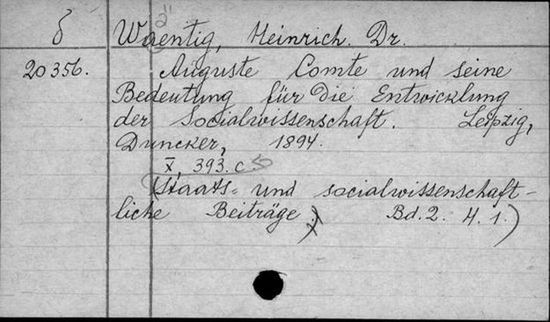 δ Waentig, Heinrich. Dr.
20356. Auguste Comte und seine
Bedeutung für die Entwicklung
der Socialwissenschaft. Leipzig,
Duncker, 1894.
X, 393. c
(Staats- und socialwissenschaft-
liche Beiträge.) Bd. 2. H. 1.)